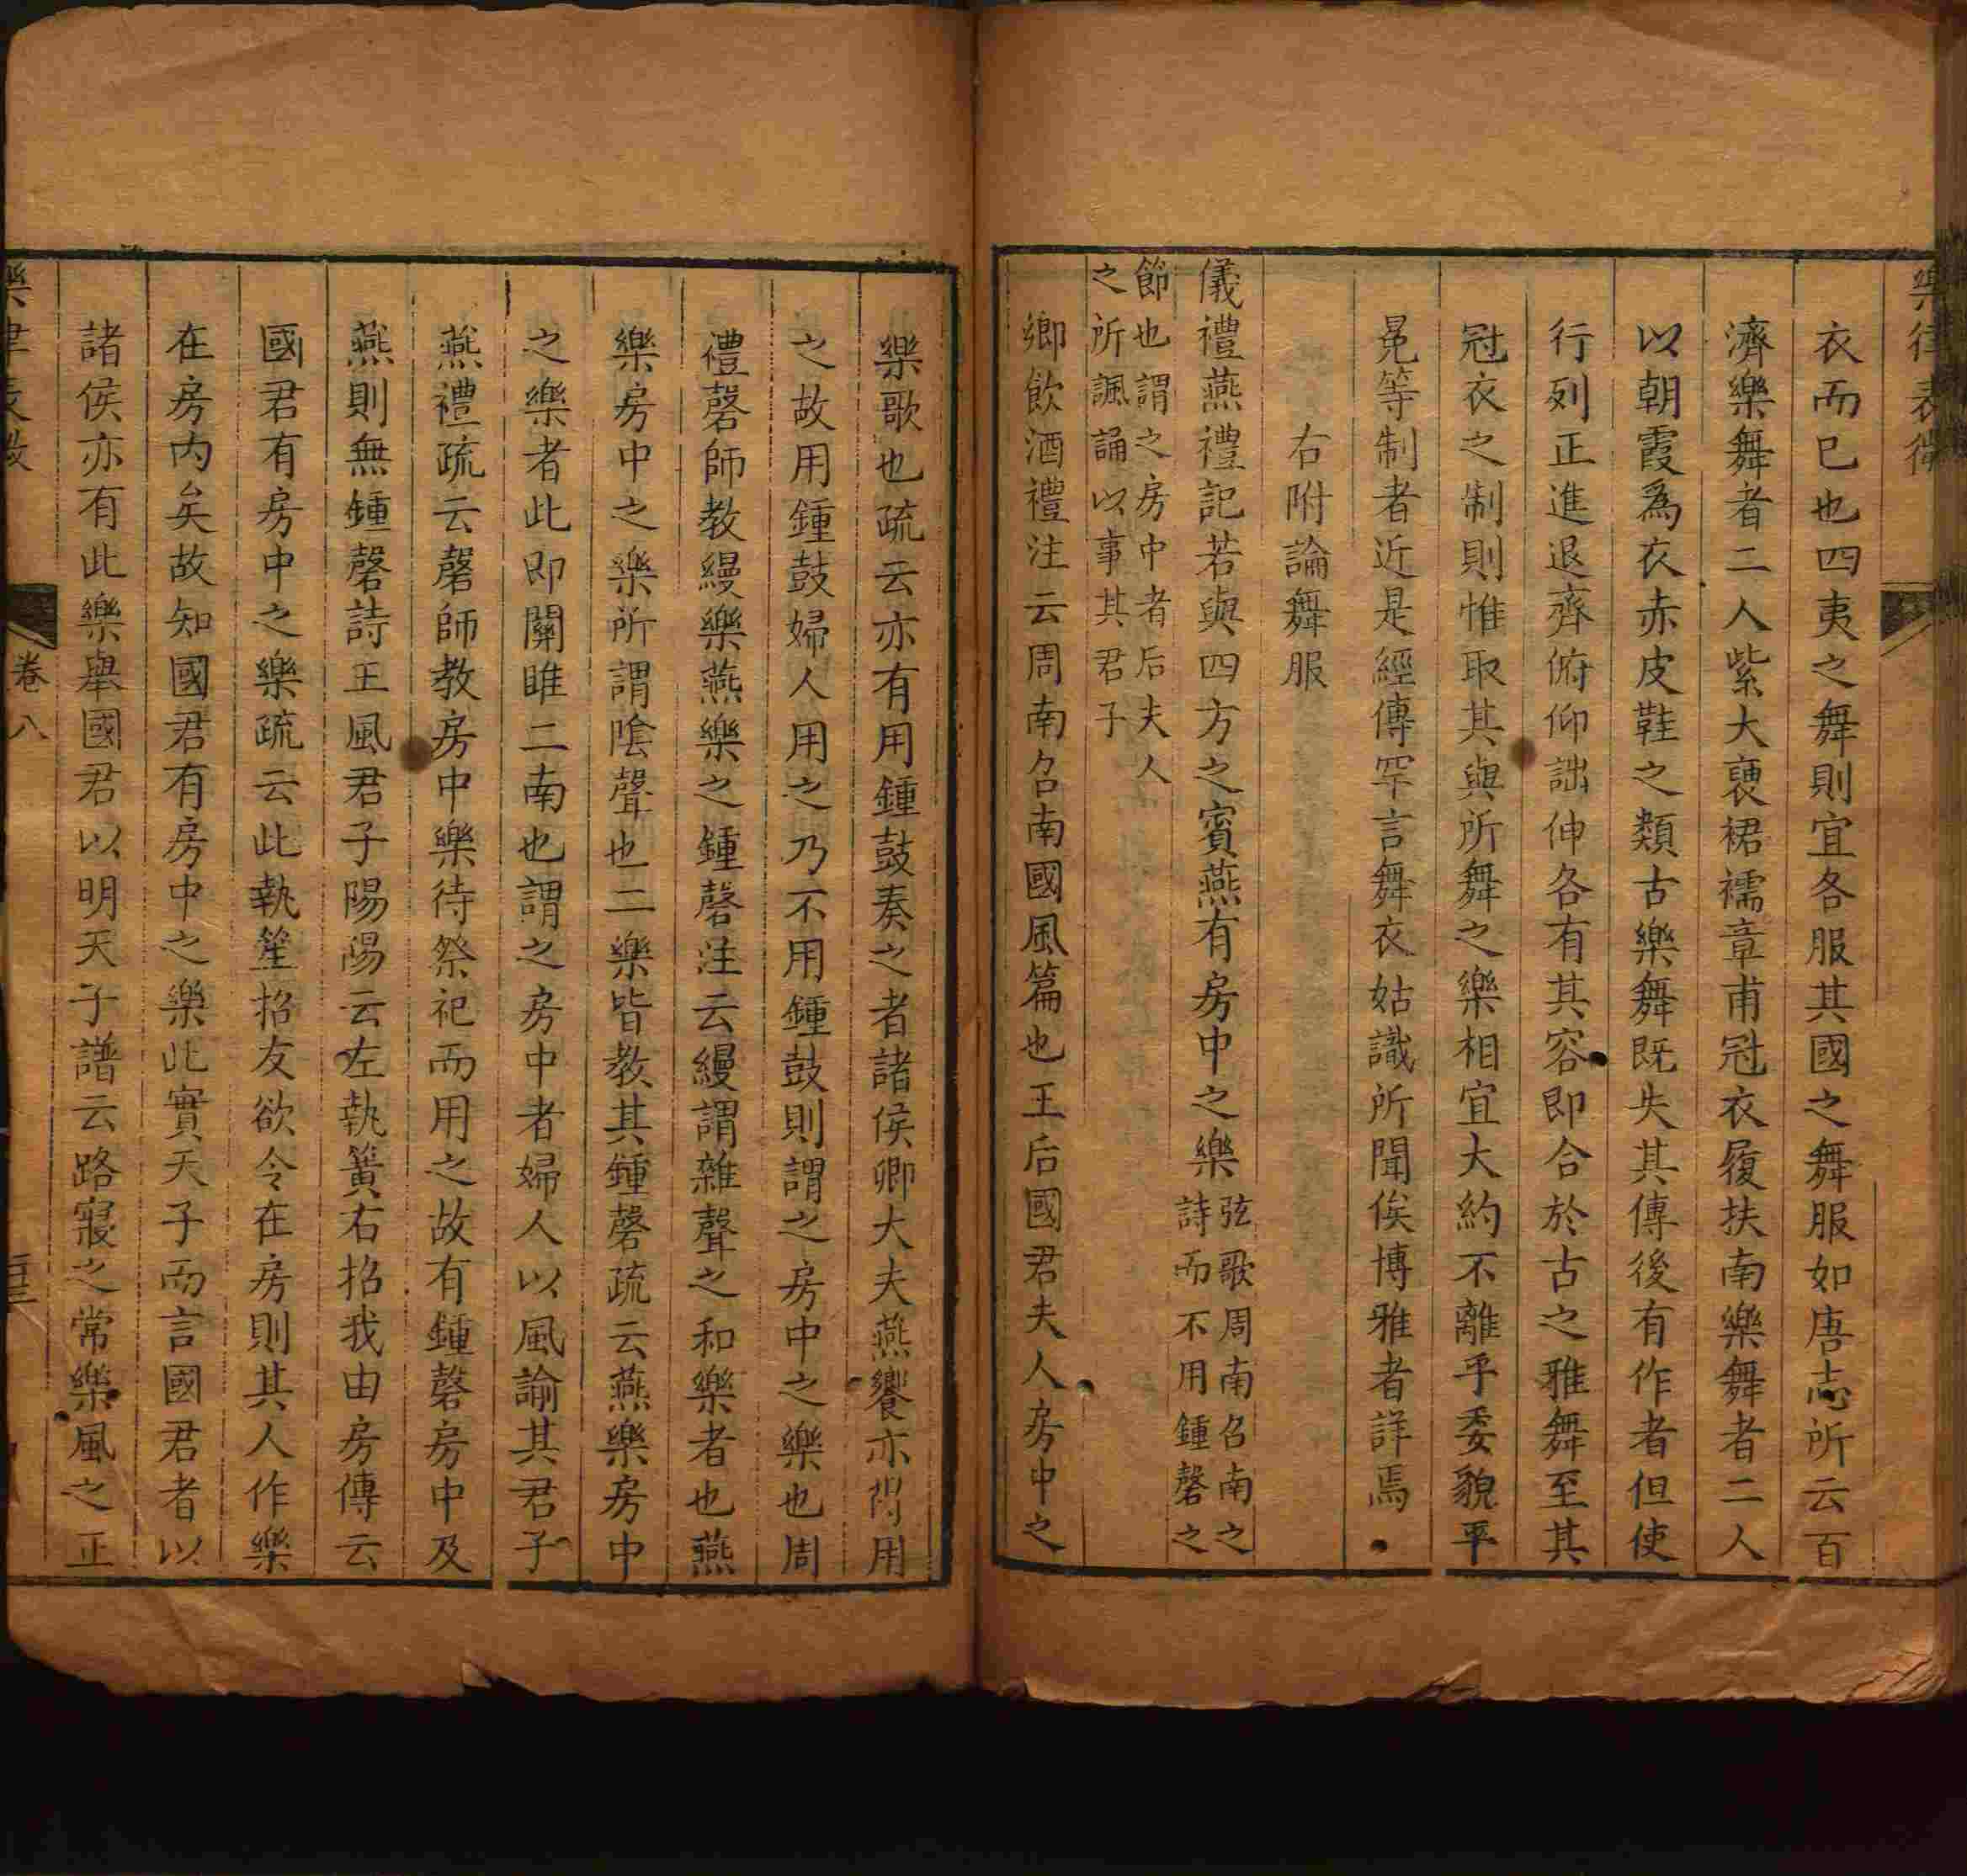 樂律表微
衣而已也四夷之舞則宜各服其國之舞服如唐志所云百
濟樂舞者二人紫大褏裙襦章甫冠衣履扶南樂舞者二人
以朝霞爲衣赤皮鞋之類古樂舞既失其傳後有作者但使
行列正進退齊俯仰詘伸各有其容即合於古之雅舞至其
冠衣之制則惟取其與所舞之樂相宜大約不離乎委貌平
冕等制者近是經傳罕言舞衣姑識所聞俟博雅者詳焉
右附論舞服
儀禮燕禮記若與四方之賓燕有房中之樂弦歌周南召南之
詩而不用鍾磬之
節也謂之房中者后夫人
之所諷誦以事其君子
鄉飲酒禮注云周南召南國風篇也王后國君夫人房中之
樂歌也疏云亦有用鍾鼓奏之者諸侯卿大夫燕饗亦得用
之故用鍾鼓婦人用之乃不用鍾鼓則謂之房中之樂也周
禮磬師教縵樂燕樂之鍾磬注云縵謂雜聲之和樂者也燕
樂房中之樂所謂陰聲也二樂皆教其鍾磬疏云燕樂房中
之樂者此即關雎二南也謂之房中者婦人以風諭其君子
燕禮疏云磬師教房中樂待祭祀而用之故有鍾磬房中及
燕則無鍾磬詩王風君子陽陽云左執簧右招我由房傳云
國君有房中之樂疏云此執笙招友欲令在房則其人作樂
在房內矣故知國君有房中之樂此實天子而言國君者以
諸侯亦有此樂舉國君以明天子譜云路寢之常樂風之正
樂律表微
卷八